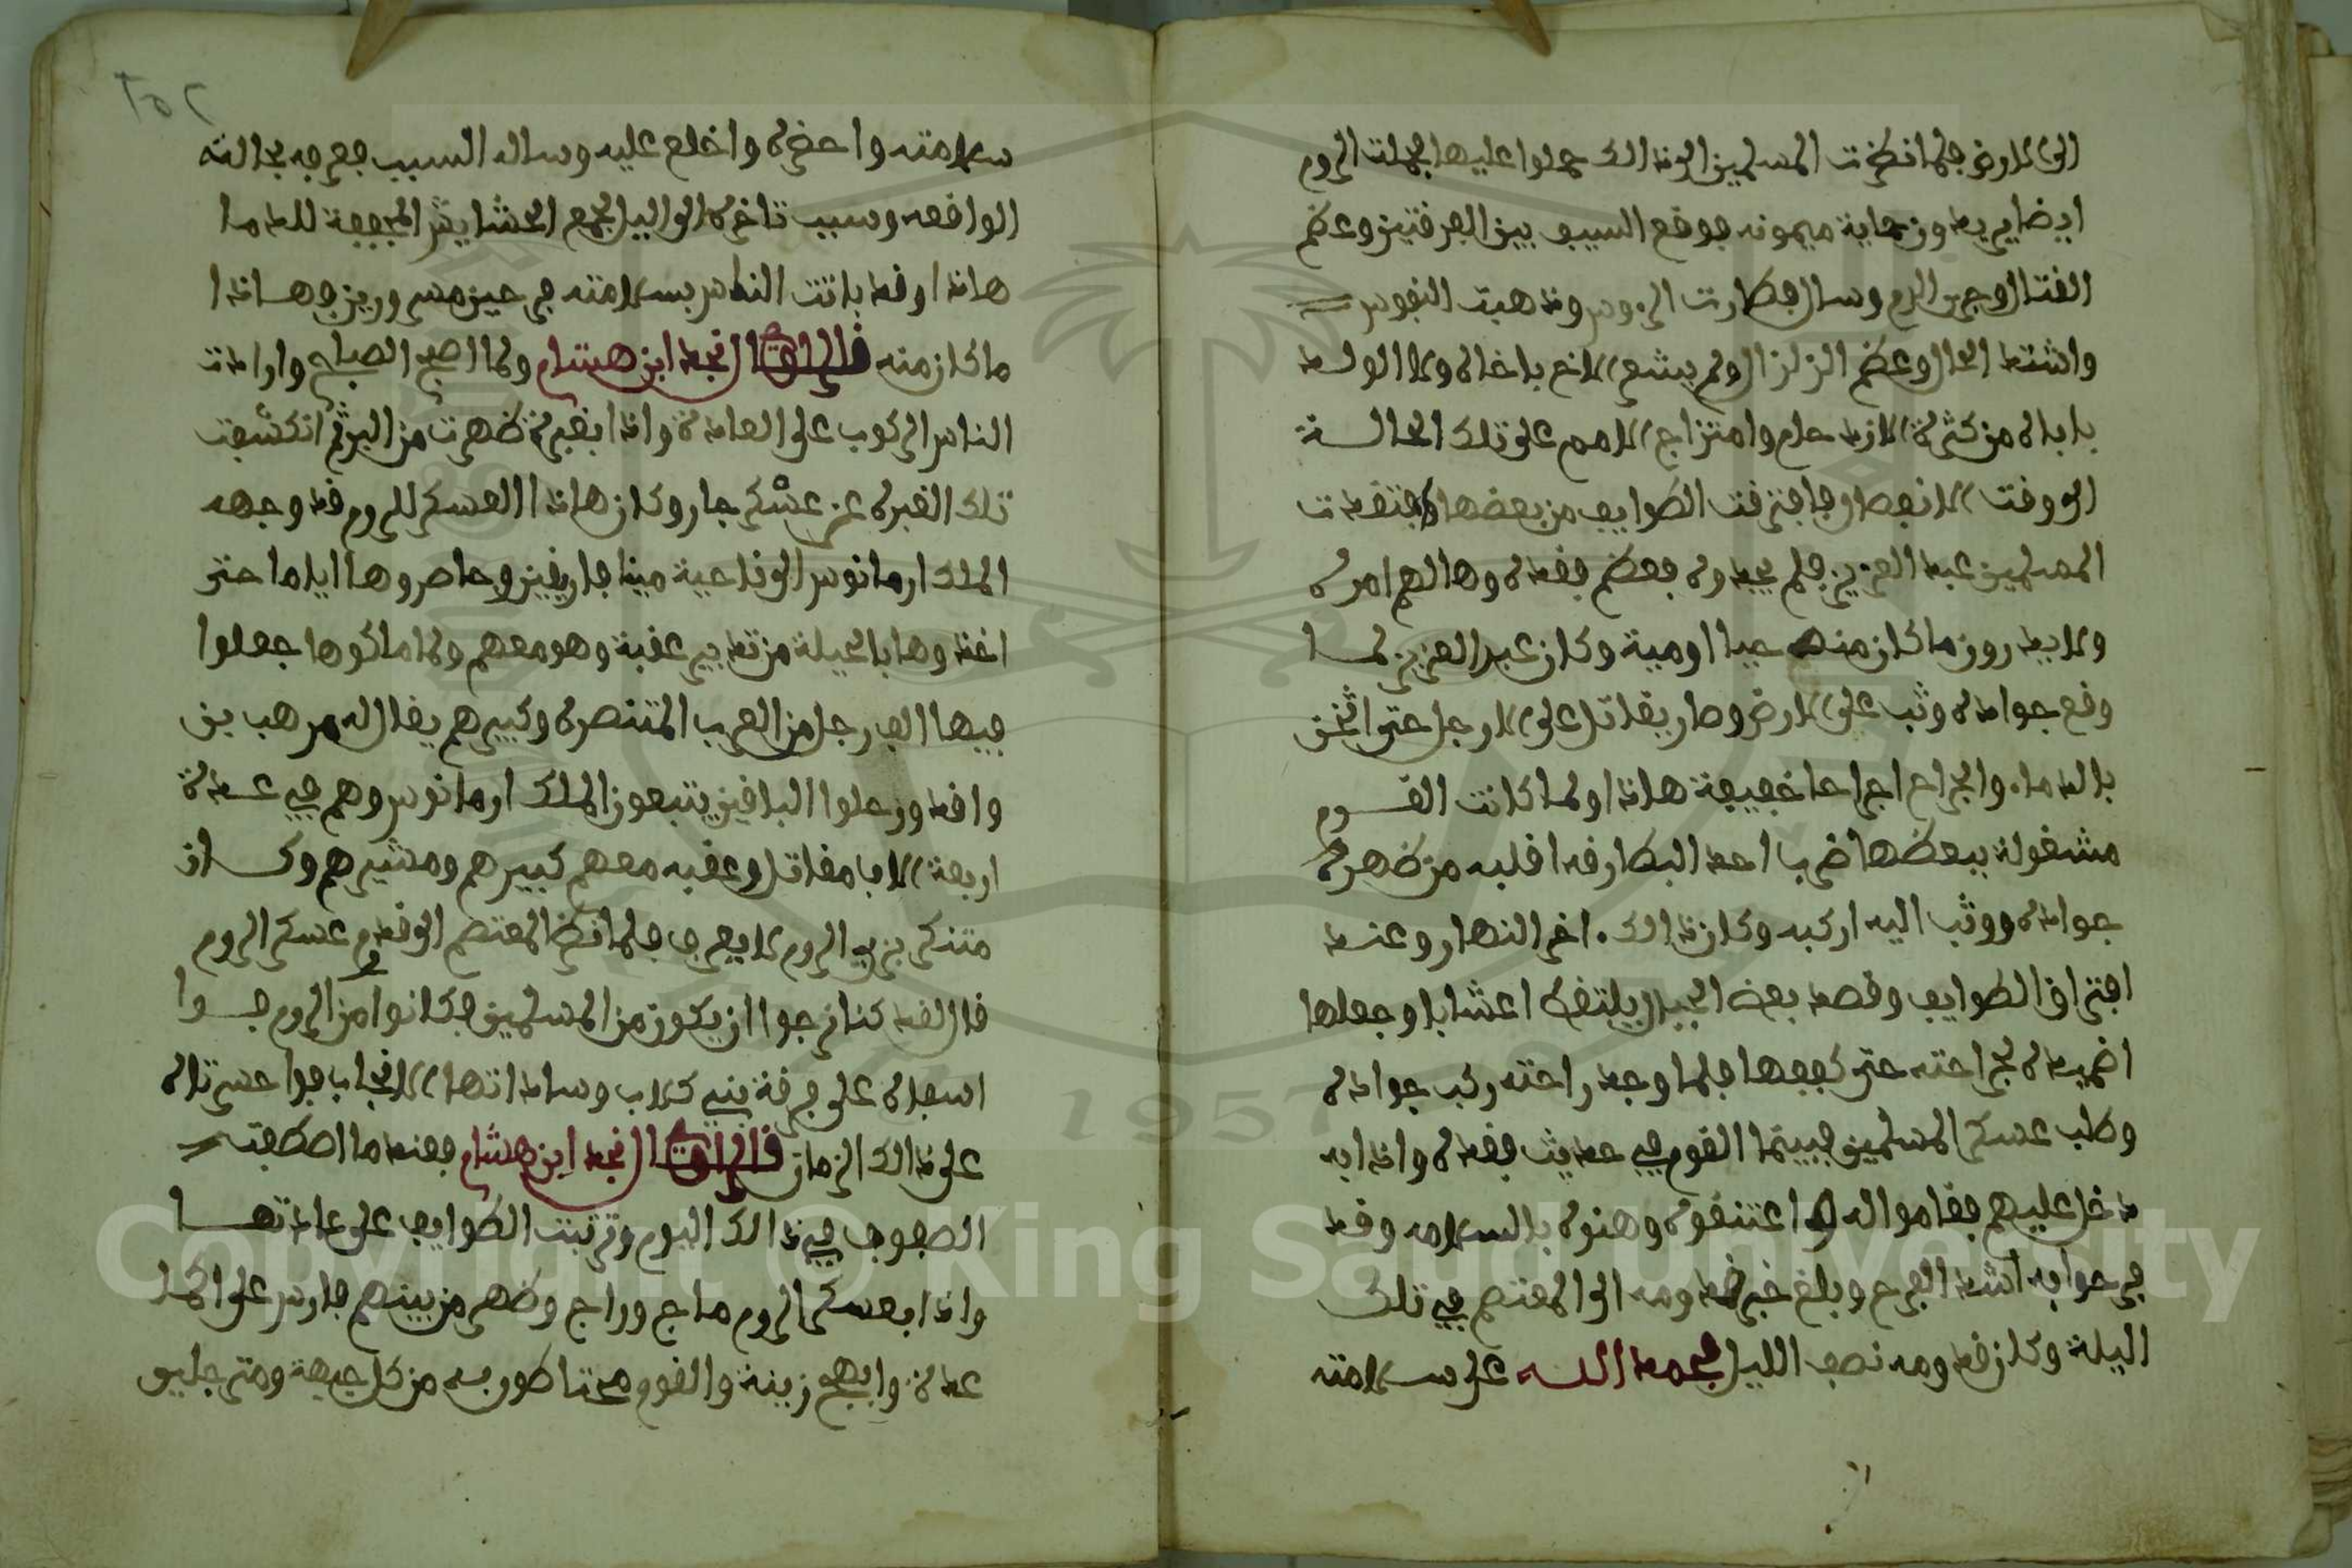 الى الارض فلما نظرت المسلمين الى ذالك حملوا عليها فحملت الروم
ايضا يريدون حماية ميمونه فوقع السيف بين الفرقتين وعظم
القتال وجرى الدم وسال وطارت الروس وذهبت النفوس
واشتد الحال وعظم الزلزال ولم يشعر الاخ باخاه ولا الولد
باباه من كثرة الازدحام وامتزاج الامم على تلك الحالة
الى وقت الانفصال فافترقت الطوايف من بعضها فتفقدت
المسلمين عبد العزيز فلم يجدوه فعظم فقده وهالهم امره
ولا يدرون ما كان منه حيا او مية وكان عبد العزيز لما
وقع جواده وثب على الارض وصار يقاتل على الارجل حتى اثخن
بالدماء والجراح اجراحا خفيفة هاذا ولما كانت القوم
مشغولة ببعضها ضرب احد البطارقه اقلبه من ظهر
جواده ووثب اليه اركبه وكان ذالك اخر النهار وعند
افتراق الطوايف وقصد بعض الجبال يلتقط اعشابا وجعلها
اضميدة لجراحته حتى كففها فلما وجد راحته ركب جواده
وطلب عسكر المسلمين فبينما القوم في حديث فقده واذا به
دخل عليهم فقاموا له اعتنقوه وهنوه بالسلامه وقد
فرحوا به اشد الفرح وبلغ خبر قدومه الى المعتصم في تلك
الليلة وكان قدومه نصف الليل فحمد الله على سلامته
٢٥٦
سلامته واحضره واخلع عليه وساله السبب فعرفه بحالته
الواقعه وسبب تاخره الى الليل لجمع الحشايش المجففة للدما
هاذا وقد باتت الناس بسلامته في حيز مسرورين فهاذا
ما كان منه قال الراوي قال نجد ابن هشام ولما اصبح الصباح وارادت
الناس الركوب على العادة واذا بغبرة ظهرت من البر ثم انكشفت
تلك الغبره عن عسكر جار وكان هاذا العسكر للروم قد وجهه
الملك ارمانوس الى ناحية ميافارقين وحاصروها اياما حتى
اخذوها بالحيلة من تدبير عقبة وهو معهم ولما ملكوها جعلوا
فيها الف رجل من العرب المتنصره وكبيرهم يقال له مرهب بن
واقد ورحلوا الباقين يتبعون الملك ارمانوس وهم في عدة
اربعة الاف مقاتل وعقبه معهم كبيرهم ومشيرهم وكان
متنكر بزي الروم لا يعرف فلما نظر المعتصم الى قدوم عسكر الروم
قال لقد كنا نرجوا ان يكون من المسلمين فكانوا من الروم فوا
اسفاه على فرقة بني كلاب وساداتها الانجاب فوا حسرتاه
على ذالك الزمان قال الراوي قال نجد ابن هشام فعند ما اصطفت
الصفوف في ذالك اليوم وترتبت الطوايف على عادتها
واذا بعسكر الروم ماج وراج وظهر من بينهم فارس على اكمل
عدة وابهج زينة والقوم محتاطون به من كل جهة ومترجلين